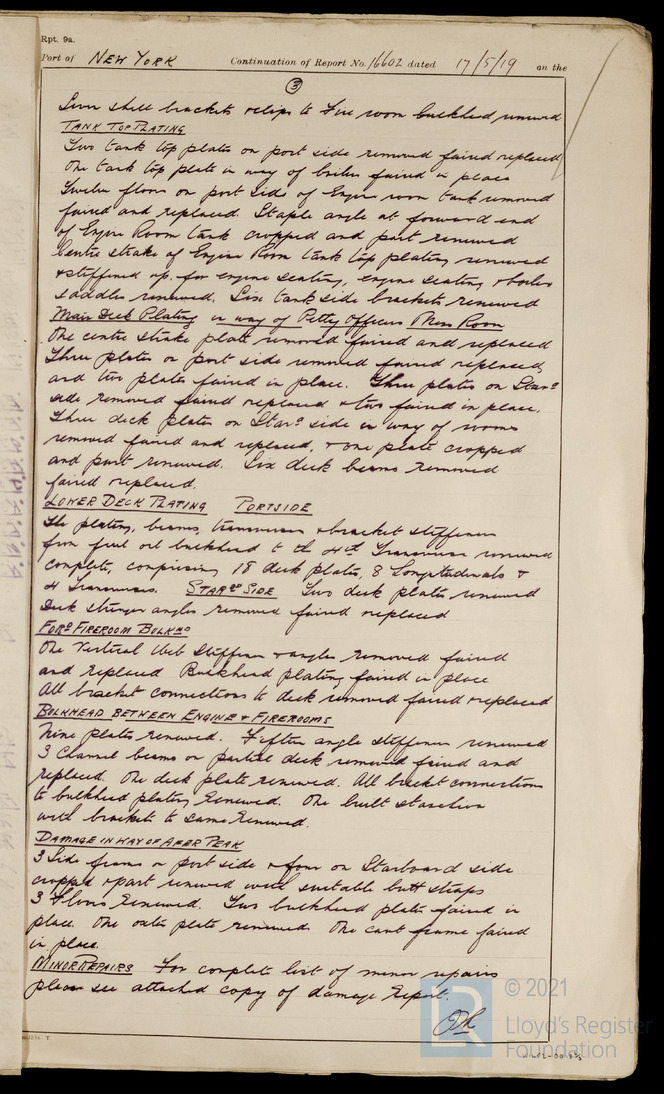 Rpt. 9a.
Port of NEW YORK Continuation of Report No. 16602 dated 17/5/19 on the
3
Seven shell brackets & clips to Fire room bulkhead renewed
TANK TOP PLATING
Two tank top plates on port side removed faired replaced
One tank top plate in way of boiler faired in place
Twelve floors on port side of Engine room tank removed
faired and replaced. Staple angle at forward end
of Engine Room tank cropped and part renewed
Centre strake of Engine Room tank top plating renewed
& stiffened up. for engine seating, engine seating & boiler
saddles renewed. Six tank side brackets renewed
Main Deck Plating in way of Petty Officers Mess Room
One centre strake plate removed faired and replaced
Three plates on port side removed faired replaced
and two plates faired in place. Three plates on Starᵈ
side removed faired replaced & two faired in place.
Three deck plates on Starᵈ side in way of rooms
removed faired and replaced, & one plate cropped
and part renewed. Six deck beams removed
faired replaced.
LOWER DECK PLATING PORTSIDE
The plating, beams, transverses & bracket stiffeners
from fuel oil bulkhead to the 4th Transverse renewed
complete, comprising 18 deck plates, 8 Longitudinals &
4 Transverses. STARᴰ SIDE Two deck plates renewed
Deck stringer angles removed faired replaced
FORᴰ FIREROOM BULKHᴰ
One Vertical Web stiffener & angles removed faired
and replaced Bulkhead plating faired in place
All bracket connections to deck removed faired & replaced
BULKHEAD BETWEEN ENGINE & FIREROOMS
Nine plates renewed. Fifteen angle stiffeners renewed
3 Channel beams on partial deck removed faired and
replaced. One deck plate renewed. All bracket connections
to bulkhead plating renewed. One built stanchion
with brackets to same renewed.
DAMAGE IN WAY OF AFTER PEAK
3 Side frames on port side & four on Starboard side
cropped & part renewed with suitable butt straps
3 Floors renewed. Two bulkhead plates faired in
place. One oxter plate renewed One cant frame faired
in place.
MINOR REPAIRS For complete list of minor repairs
please see attached copy of damage report.
© 2021
Lloyd's Register
Foundation